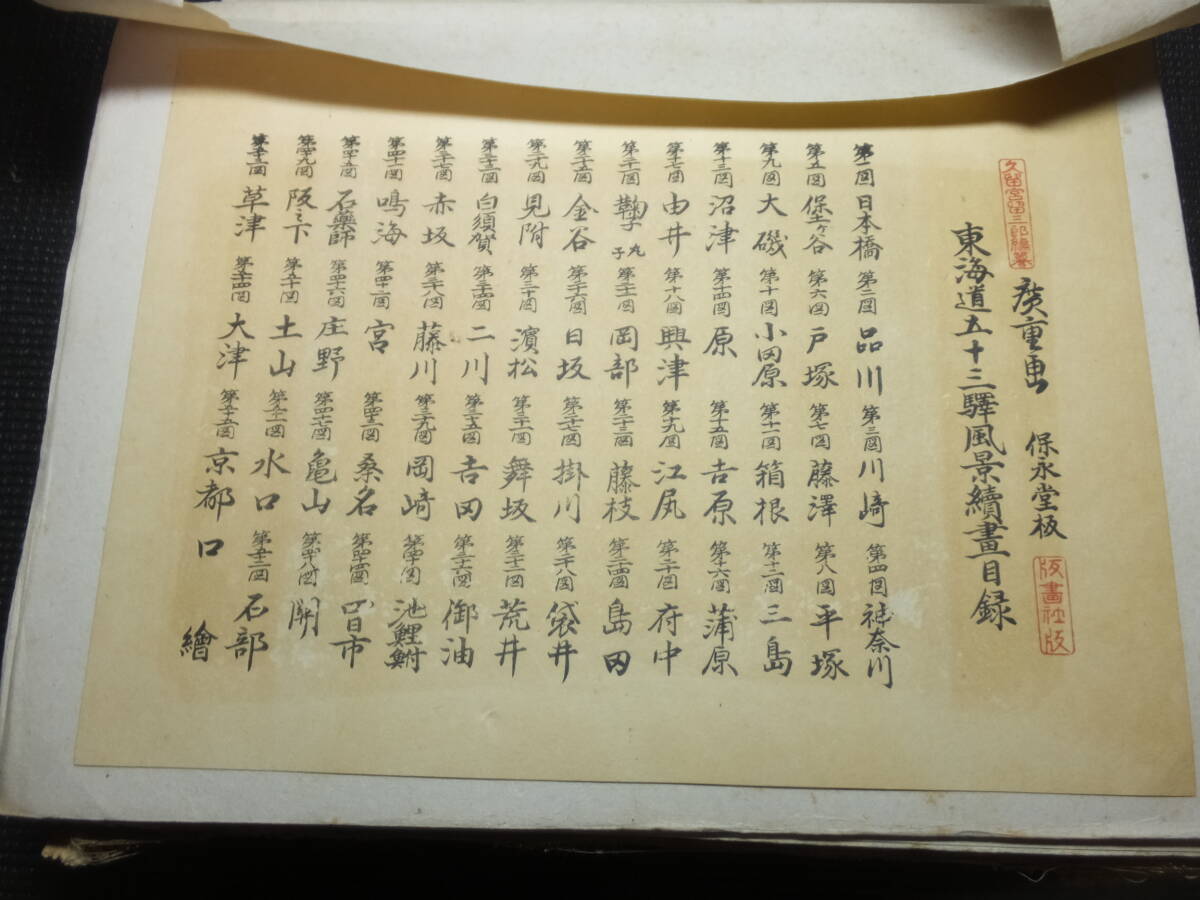 久留宮留三郎編纂
廣重画 保永堂板
版畫社版
東海道五十三驛風景續畫目録
第一図 日本橋 第二図 品川 第三図 川崎 第四図 神奈川
第五図 保土ヶ谷 第六図 戸塚 第七図 藤澤 第八図 平塚
第九図 大磯 第十図 小田原 第十一図 箱根 第十二図 三島
第十三図 沼津 第十四図 原 第十五図 吉原 第十六図 蒲原
第十七図 由井 第十八図 興津 第十九図 江尻 第二十図 府中
第二十一図 鞠子 丸子 第二十二図 岡部 第二十三図 藤枝 第二十四図 島田
第二十五図 金谷 第二十六図 日坂 第二十七図 掛川 第二十八図 袋井
第二十九図 見附 第三十図 濱松 第三十一図 舞坂 第三十二図 荒井
第三十三図 白須賀 第三十四図 二川 第三十五図 吉田 第三十六図 御油
第三十七図 赤坂 第三十八図 藤川 第三十九図 岡崎 第四十図 池鯉鮒
第四十一図 鳴海 第四十二図 宮 第四十三図 桑名 第四十四図 四日市
第四十五図 石藥師 第四十六図 庄野 第四十七図 亀山 第四十八図 関
第四十九図 阪之下 第五十図 土山 第五十一図 水口 第五十二図 石部
第五十三図 草津 第五十四図 大津 第五十五図 京都 口繪